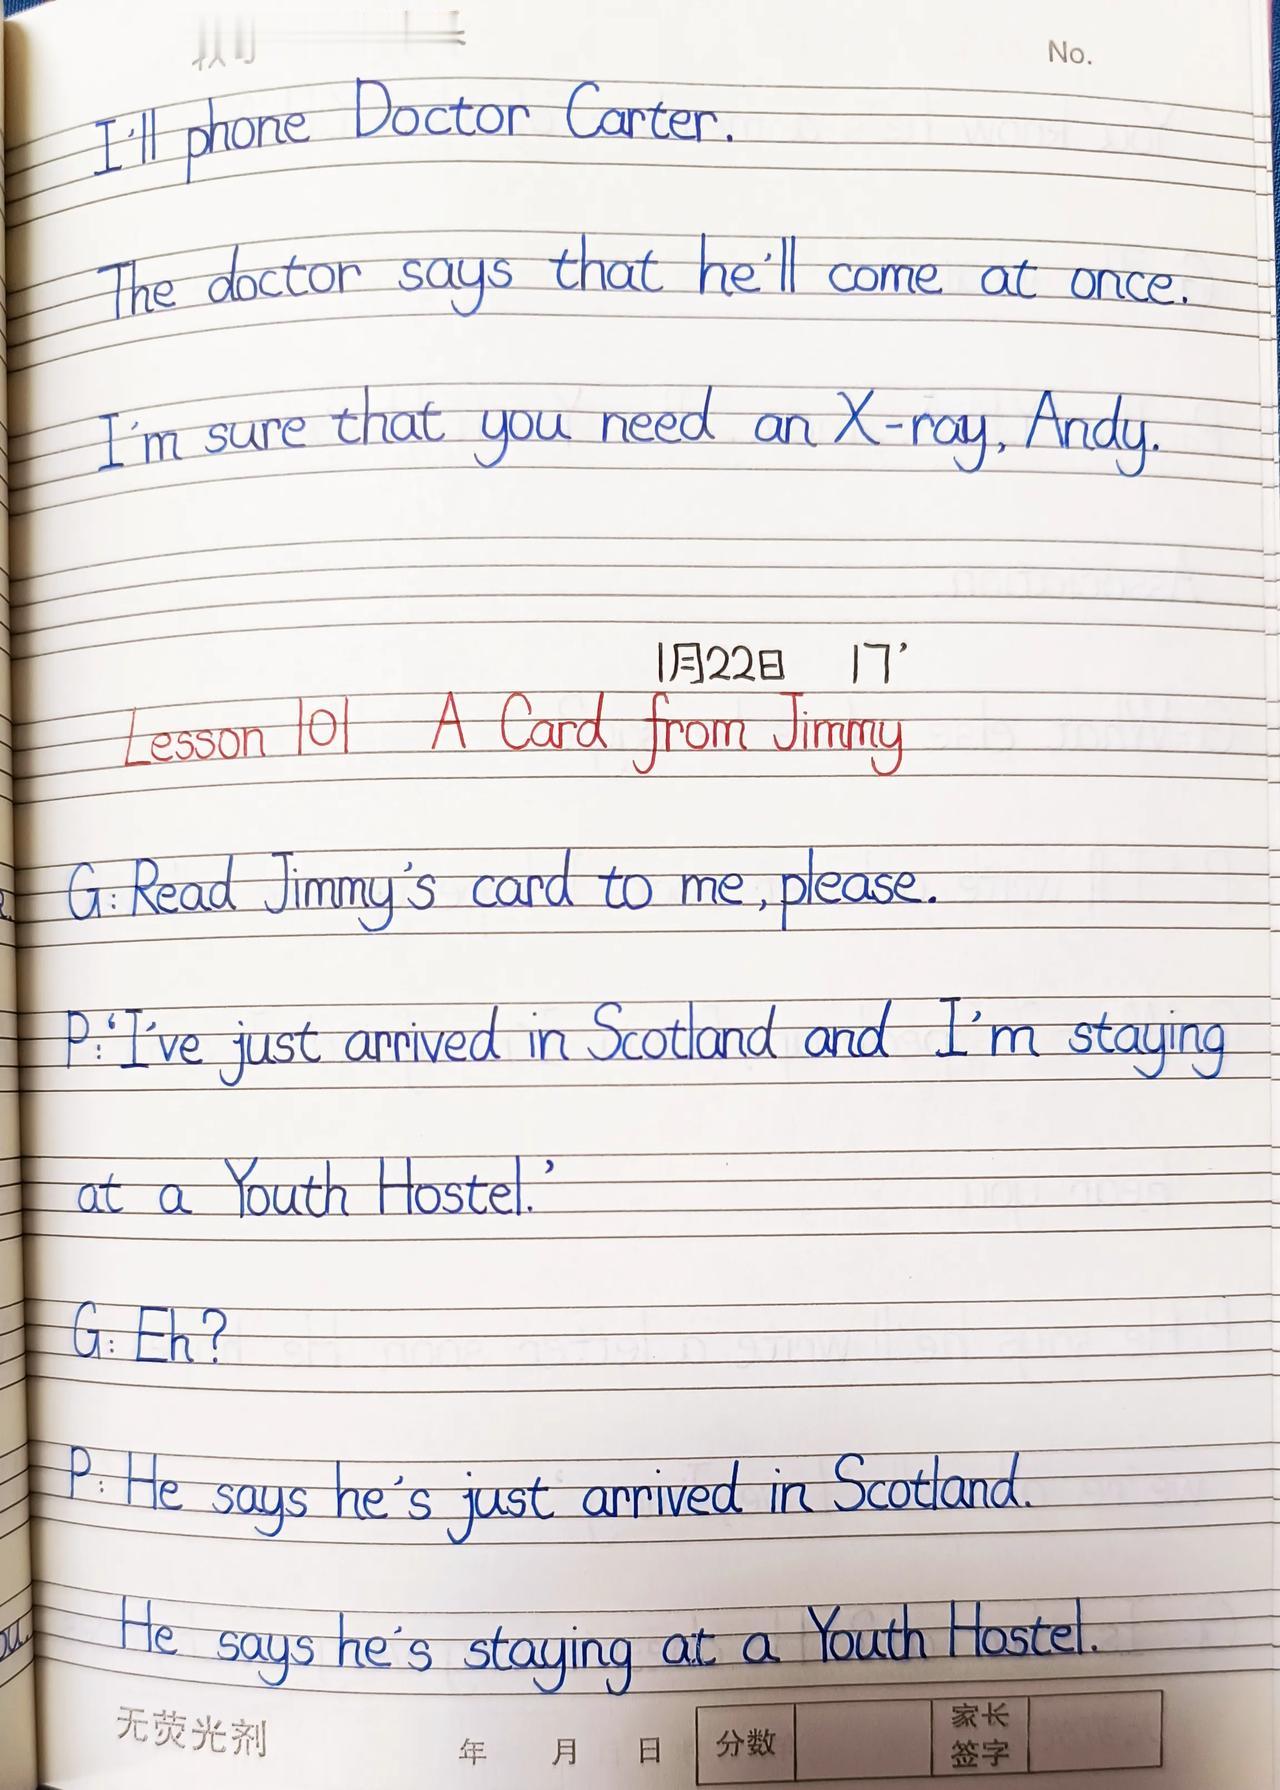 No.
I'll phone Doctor Carter.
The doctor says that he'll come at once.
I'm sure that you need an X-ray, Andy.
1月22日 17'
Lesson 101 A Card from Jimmy
G: Read Jimmy's card to me, please.
P: 'I've just arrived in Scotland and I'm staying
at a Youth Hostel.'
G: Eh?
P: He says he's just arrived in Scotland.
He says he's staying at a Youth Hostel.
无荧光剂 年 月 日 分数 家长签字